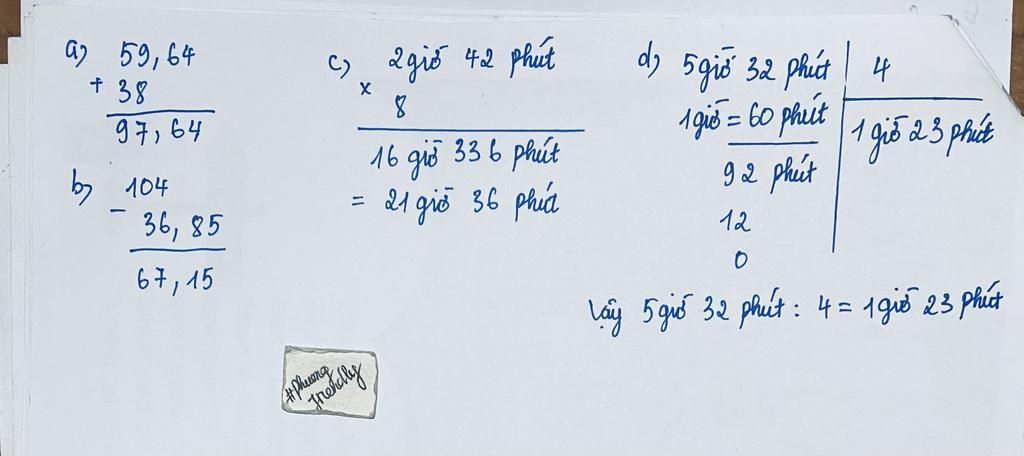 a) 59,64
+ 38
97,64
b) 104
- 36,85
67,15
c) 2 giờ 42 phút
x 8
16 giờ 336 phút
= 21 giờ 36 phút
d) 5 giờ 32 phút | 4
1 giờ = 60 phút | 1 giờ 23 phút
92 phút
12
0
Vậy 5 giờ 32 phút : 4 = 1 giờ 23 phút
#phuong
friendly